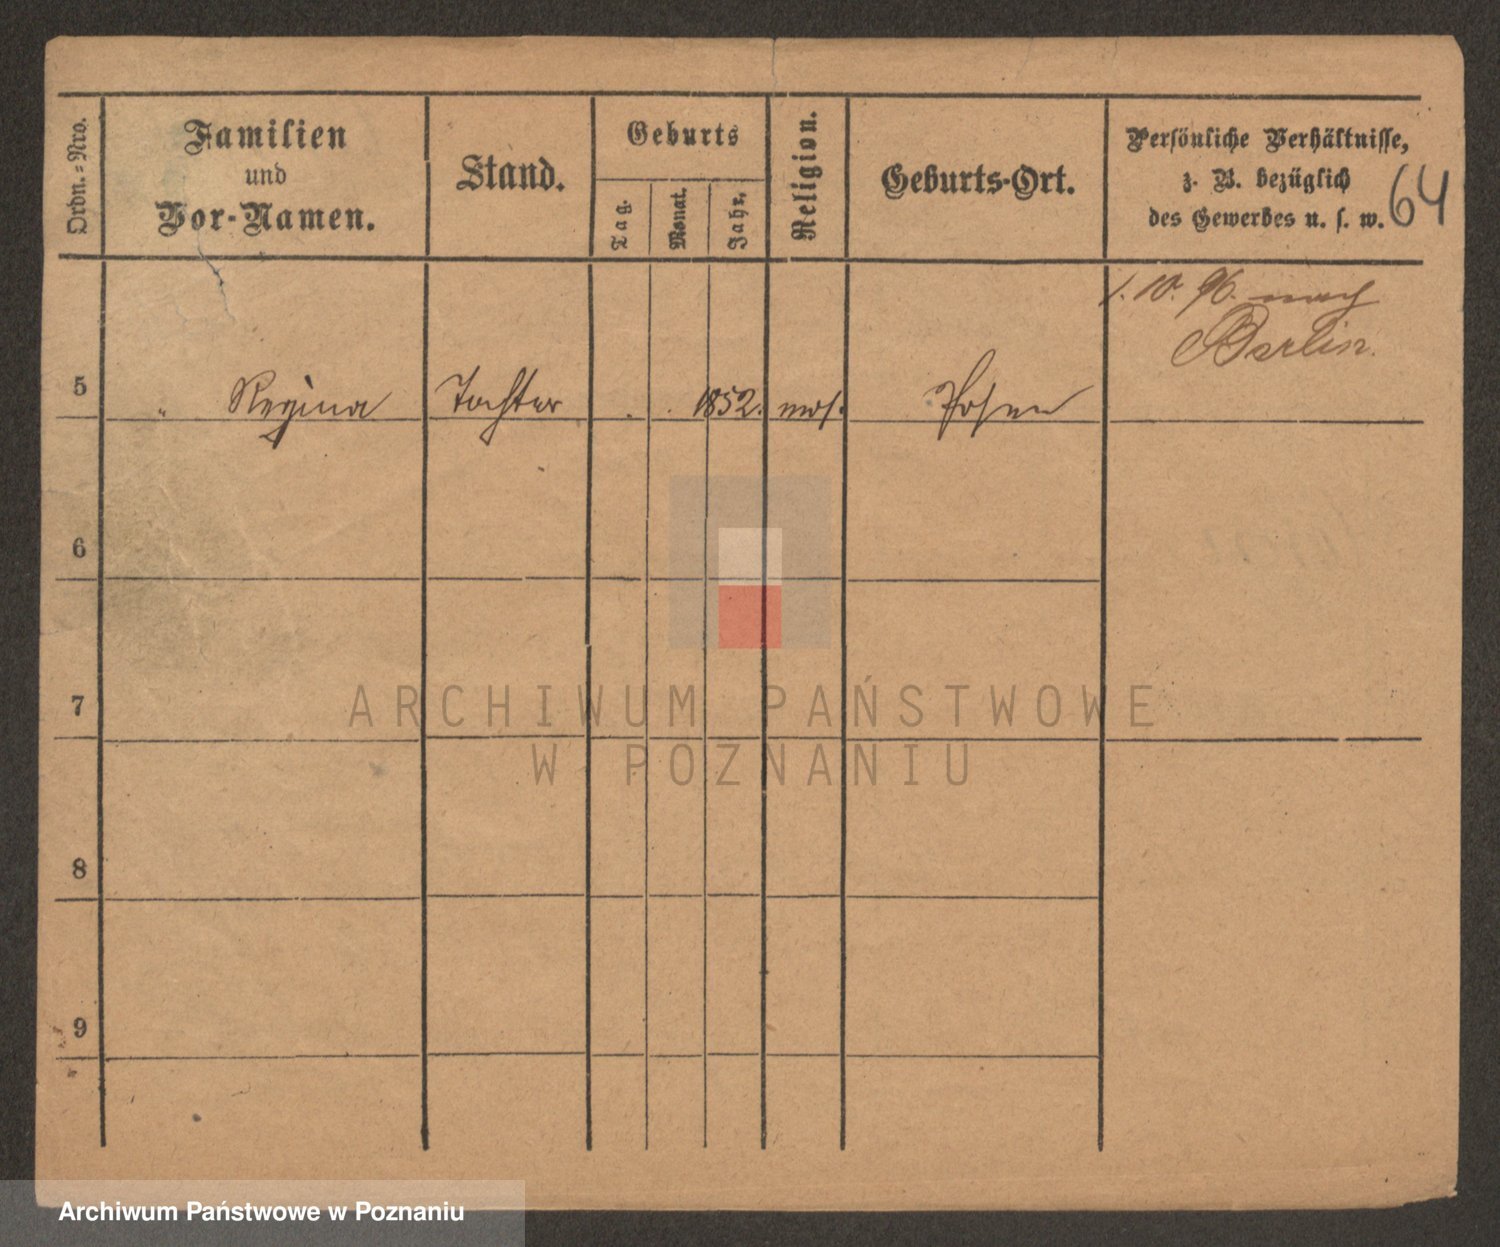 Ordn.-Nro.
Familien
und
Vor-Namen.
Stand.
Geburts
Tag.
Monat.
Jahr.
Religion.
Geburts-Ort.
Persönliche Verhältnisse,
z. B. bezüglich
des Gewerbes u. s. w.
64
1. 10. 96. nach
Berlin.
5 " Regina Tochter . . 1852. mos. Posen
6
7
8
9
ARCHIWUM PAŃSTWOWE
W POZNANIU
Archiwum Państwowe w Poznaniu